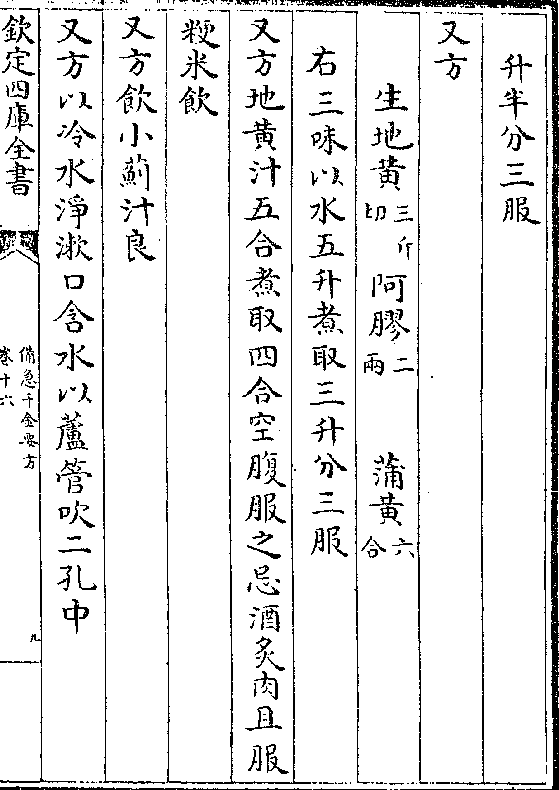 升半分三服
又方
生地黄三斤切 阿膠二兩 蒲黄六合
右三味以水五升煮取三升分三服
又方地黄汁五合煮取四合空腹服之忌酒炙肉且服
粳米飲
又方飲小薊汁良
又方以冷水淨漱口含水以蘆管吹二孔中
欽定四庫全書
備急千金要方
卷十六
九